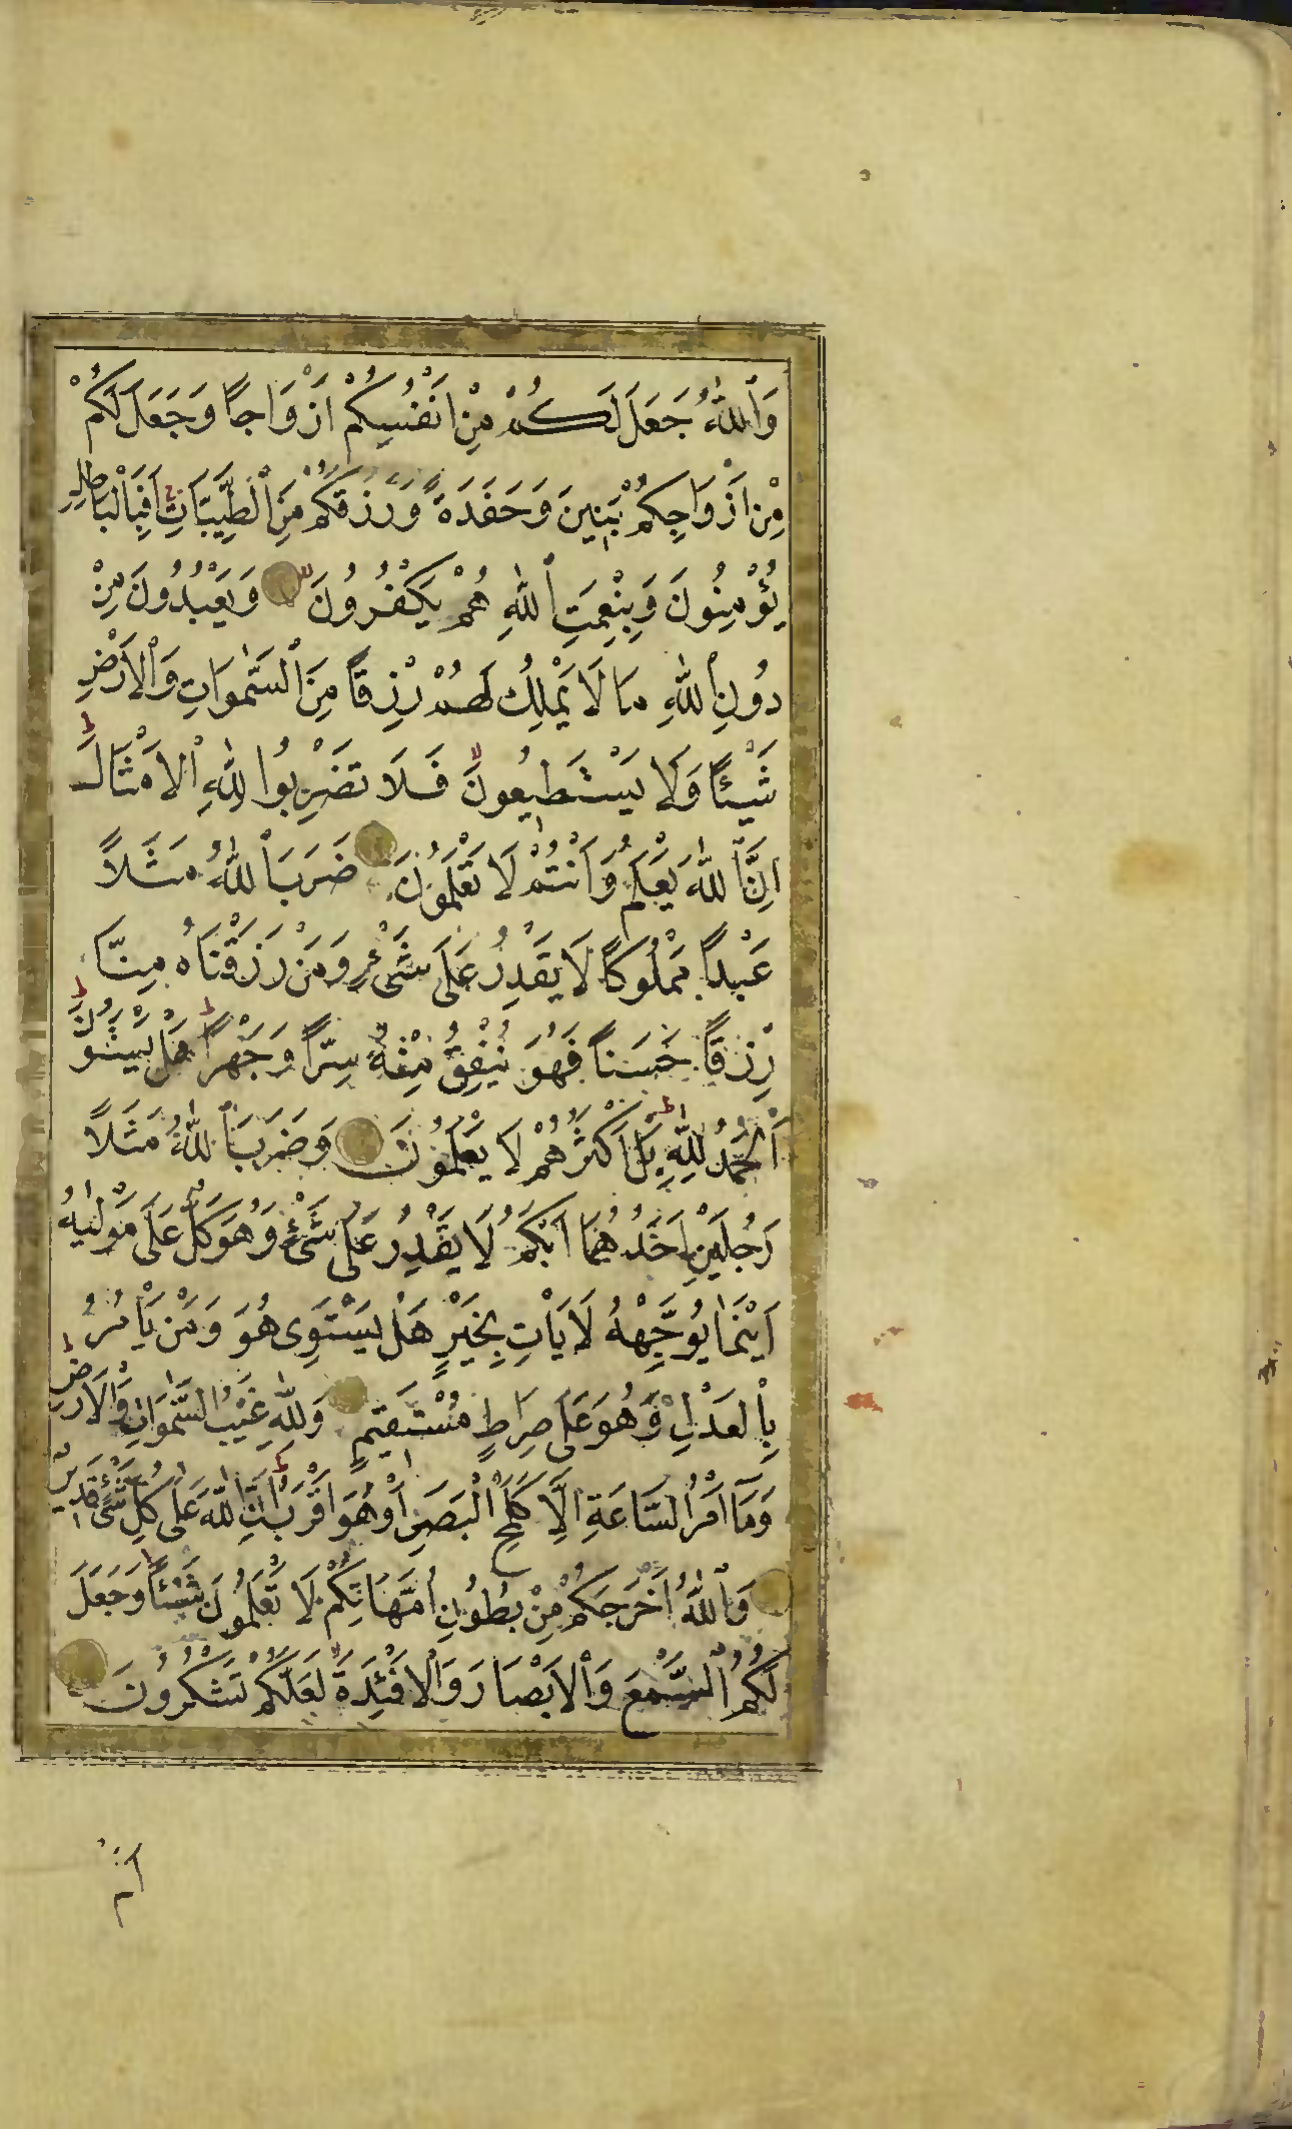 وَٱللّٰهُ جَعَلَ لَكُمْ مِنْ اَنْفُسِكُمْ اَزْوَاجًا وَجَعَلَ لَكُمْ
مِنْ اَزْوَاجِكُمْ بَنِينَ وَحَفَدَةً وَرَزَقَكُمْ مِنَ ٱلطَّيِّبَاتِ اَفَبِٱلْبَاطِلِ
يُؤْمِنُونَ وَبِنِعْمَتِ ٱللّٰهِ هُمْ يَكْفُرُونَ وَيَعْبُدُونَ مِنْ
دُونِ ٱللّٰهِ مَا لَا يَمْلِكُ لَهُمْ رِزْقًا مِنَ ٱلسَّمٰوَاتِ وَٱلْاَرْضِ
شَيْئًا وَلَا يَسْتَطِيعُونَ فَلَا تَضْرِبُوا لِلّٰهِ ٱلْاَمْثَالَ
اِنَّ ٱللّٰهَ يَعْلَمُ وَاَنْتُمْ لَا تَعْلَمُونَ ضَرَبَ ٱللّٰهُ مَثَلًا
عَبْدًا مَمْلُوكًا لَا يَقْدِرُ عَلَى شَىْءٍ وَمَنْ رَزَقْنَاهُ مِنَّا
رِزْقًا حَسَنًا فَهُوَ يُنْفِقُ مِنْهُ سِرًّا وَجَهْرًا هَلْ يَسْتَوُنَ
اَلْحَمْدُ لِلّٰهِ بَلْ اَكْثَرُهُمْ لَا يَعْلَمُونَ وَضَرَبَ ٱللّٰهُ مَثَلًا
رَجُلَيْنِ اَحَدُهُمَا اَبْكَمُ لَا يَقْدِرُ عَلَى شَىْءٍ وَهُوَ كَلٌّ عَلَى مَوْلٰيهُ
اَيْنَمَا يُوَجِّهْهُ لَا يَاْتِ بِخَيْرٍ هَلْ يَسْتَوِى هُوَ وَمَنْ يَاْمُرُ
بِٱلْعَدْلِ وَهُوَ عَلَى صِرَاطٍ مُسْتَقِيمٍ وَلِلّٰهِ غَيْبُ ٱلسَّمٰوَاتِ وَٱلْاَرْضِ
وَمَٓا اَمْرُ ٱلسَّاعَةِ اِلَّا كَلَمْحِ ٱلْبَصَرِ اَوْ هُوَ اَقْرَبُ اِنَّ ٱللّٰهَ عَلٰى كُلِّ شَىْءٍ قَدِيرٌ
وَٱللّٰهُ اَخْرَجَكُمْ مِنْ بُطُونِ اُمَّهَاتِكُمْ لَا تَعْلَمُونَ شَيْئًا وَجَعَلَ
لَكُمُ ٱلسَّمْعَ وَٱلْاَبْصَارَ وَٱلْاَفْئِدَةَ لَعَلَّكُمْ تَشْكُرُونَ